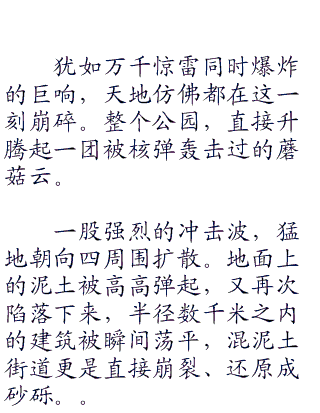 犹如万千惊雷同时爆炸
的巨响，天地仿佛都在这一
刻崩碎。整个公园，直接升
腾起一团被核弹轰击过的蘑
菇云。
一股强烈的冲击波，猛
地朝向四周围扩散。地面上
的泥土被高高弹起，又再次
陷落下来，半径数千米之内
的建筑被瞬间荡平，混泥土
街道更是直接崩裂、还原成
砂砾。。